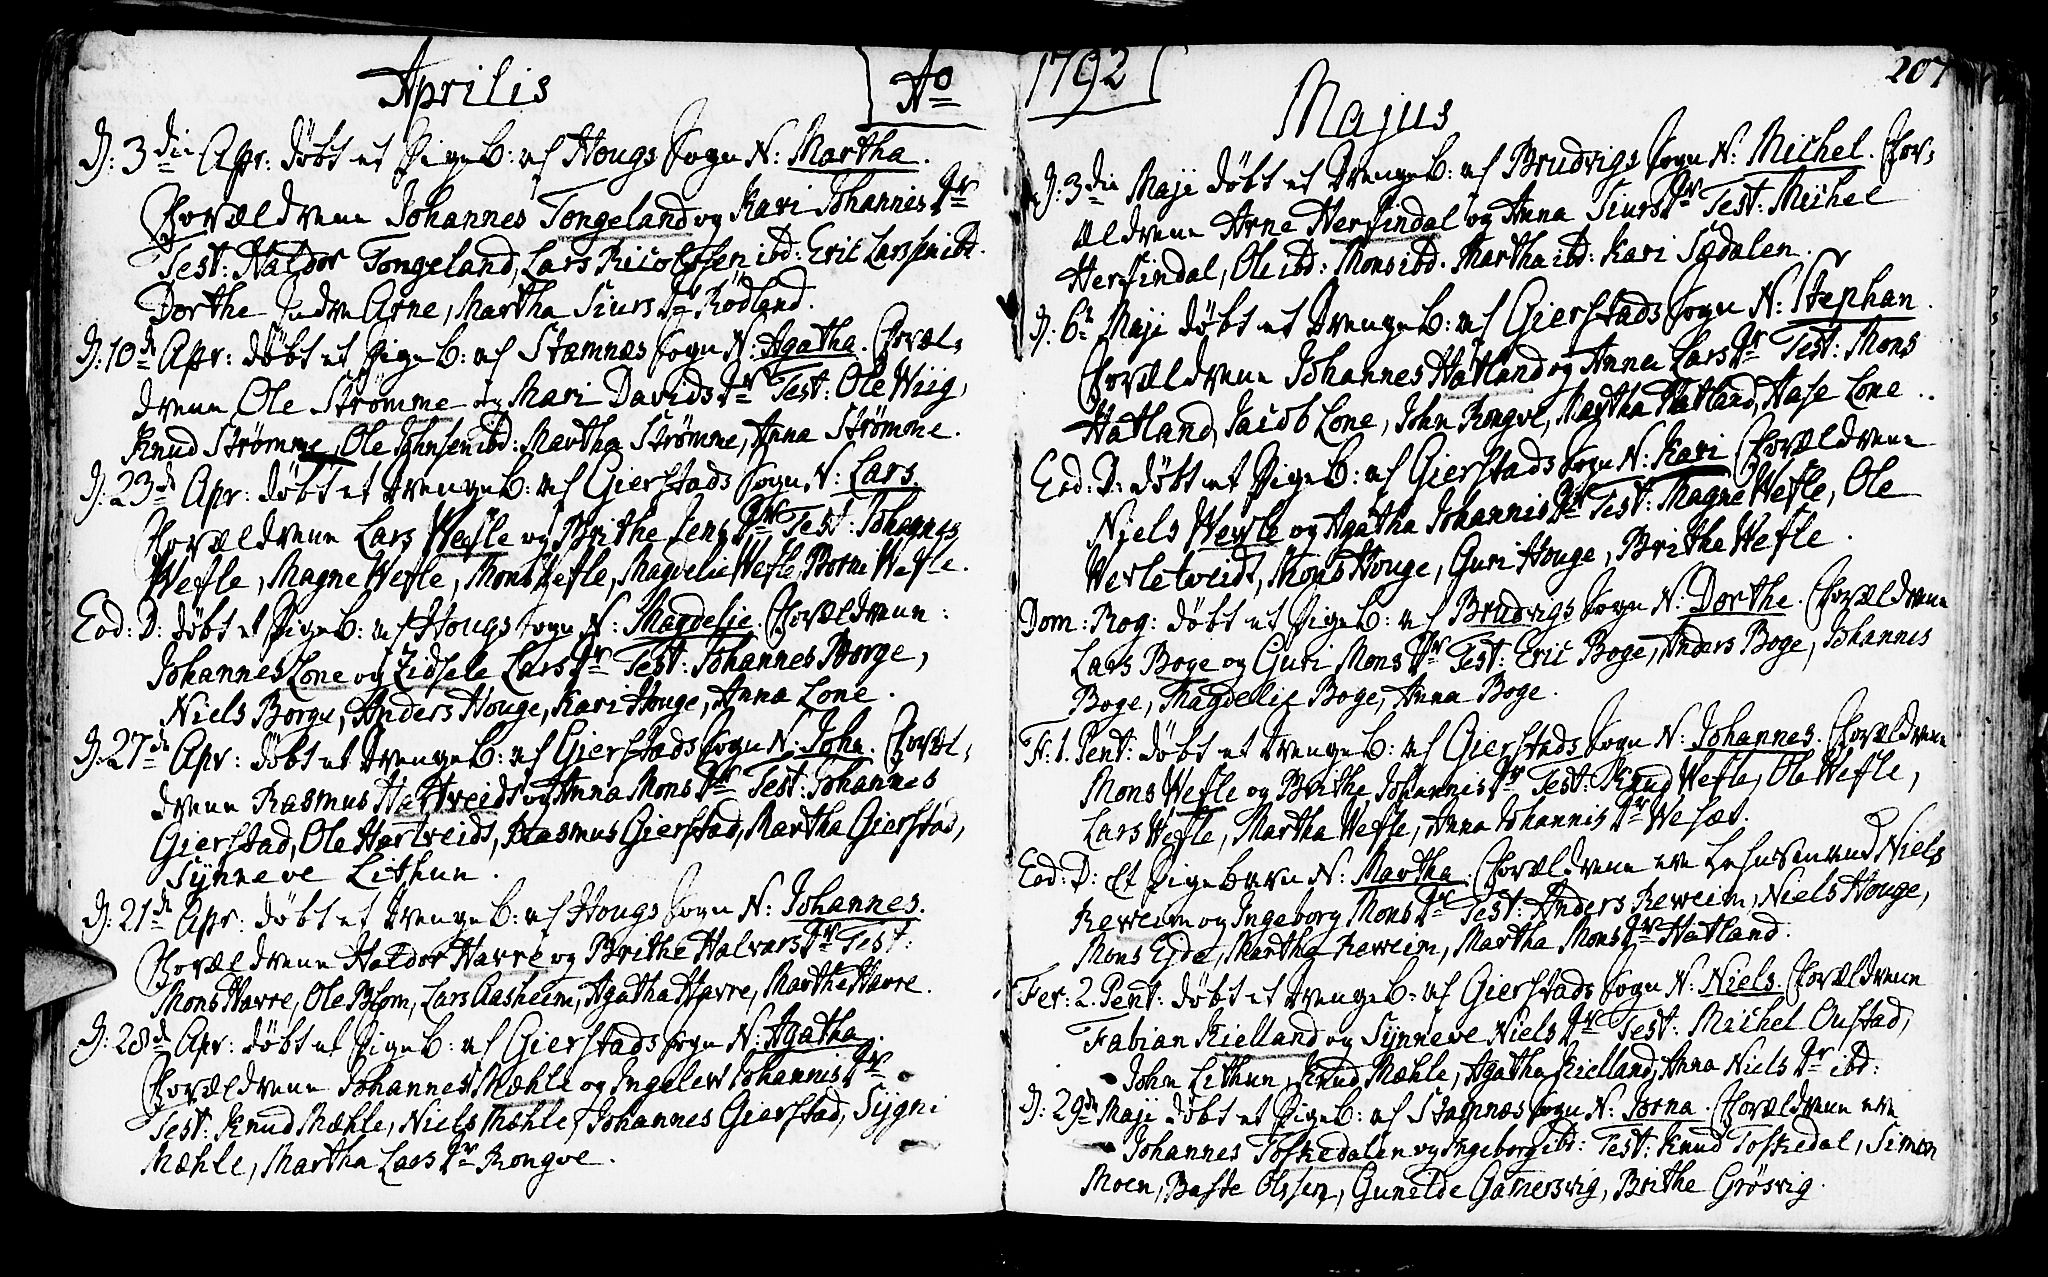 Aprilis Ao
D: 3die Apr: døbt et PigeB: af Hougs Sogn N: Martha.
Forældrene Johannes Tongeland og Kari Johannis Dr
Test: Haldor Tongeland, Lars Ricolfssen ibd: Eric Larssen ibd.
Dorthe Indre Arne, Martha Siurs Dr Rødland.
D: 10de Apr: døbt et PigeB: af Stamnæs Sogn N: Agatha. Foræl-
drene Ole Strømme og Mari Davids Dr Test: Ole Wiig,
Knud Strømme, Ole Johnsen ibd: Martha Strømme, Anna Strømme.
D: 23de Apr: døbt et DrengeB: af Gierstads Sogn N: Lars.
Forældrene Lars Wefle og Brithe Jens Dr Test: Johannes
Wefle, Magne Wefle, Mons Wefle, Magdelie Wefle, Borni Wefle.
Eod: D: døbt et PigeB: af Hougs Sogn N: Magdelie. Forældrene:
Johannes Lone og Zidsele Lars Dr Test: Johannes Borge,
Niels Borge, Anders Houge, Kari Houge, Anna Lone.
D: 27de Apr: døbt et DrengeB: af Gierstads Sogn N: John. Foræl-
drene Rasmus Hartveidt og Anna Mons Dr Test: Johannes
Gierstad, Ole Hartveidt, Rasmus Gierstad, Martha Gierstad,
Synneve Lithun.
D: 21de Apr: døbt et DrengeB: af Hougs Sogn N: Johannes.
Forældrene Haldor Havre og Brithe Halvars Dr Test:
Mons Havre, Ole Blom, Lars Aasheim, Agatha Havre, Marthe Havre.
D: 28de Apr: døbt et PigeB: af Gierstads Sogn N: Agatha.
Forældrene Johannes Mæhle og Ingelev Johannis Dr
Test: Knud Mæhle, Niels Mæhle, Johannes Gierstad, Sygni
Mæhle, Martha Lars Dr Rongve.
1792 207
Majus
D: 3die Maji døbt et DrengeB: af Brudvigs Sogn N: Michel. For-
ældrene Arne Herfindal og Anna Siurs Dr Test: Michel
Herfindal, Ole ibd: Mons ibd. Martha ibd: Kari Sødalen.
D: 6te Maji døbt et DrengeB: af Gierstads Sogn N: Stephan.
Forældrene Johannes Hatland og Anna Lars Dr Test: Mons
Hatland, Jacob Lone, John Rongve, Martha Hatland, Aase Lone.
Eod: D: døbt et PigeB: af Gierstads Sogn N: Kari Forældrene
Niels Wefle og Agatha Johannis Dr Test: Magne Wefle, Ole
Wefletveidt, Mons Houge, Guri Houge, Brithe Wefle.
Dom: Rog: døbt et PigeB: af Brudvigs Sogn N: Dorthe. Forældrene
Lars Boge og Guri Mons Dr Test: Eric Boge, Anders Boge, Johannis
Boge, Magdelie Boge, Anna Boge.
Fr: 1. Pent: døbt et DrengeB: af Gierstads Sogn N: Johannes. Forældrene
Mons Wefle og Brithe Johannis Dr Test: Knud Wefle, Ole Wefle,
Lars Wefle, Martha Wefle, Anna Johannis Dr Wesæt.
Eod: D: Et Pigebarn N: Martha. Forældrene ere Lehnsmand Niels
Reweim og Ingeborg Mons Dr Test: Anders Reweim, Niels Houge,
Mons Eyde, Martha Reweim, Martha Mons Dr Hatland.
Fer: 2. Pent: døbt et DrengeB: af Gierstads Sogn N: Niels. Forældrene
Fabian Kielland og Synneve Niels Dr Test: Michel Onstad,
John Lithun, Knud Mæhle, Agatha Kielland, Anna Niels Dr ibd:
D: 29de Maji døbt et PigeB: af Stamnæs Sogn N: Jorna. Forældrene ere
Johannes Toskedalen og Ingeborg ibd: Test: Knud Toskedal, Simon
Moen, Baste Olssen, Gunilde Gamersvig, Brithe Grøsvig.